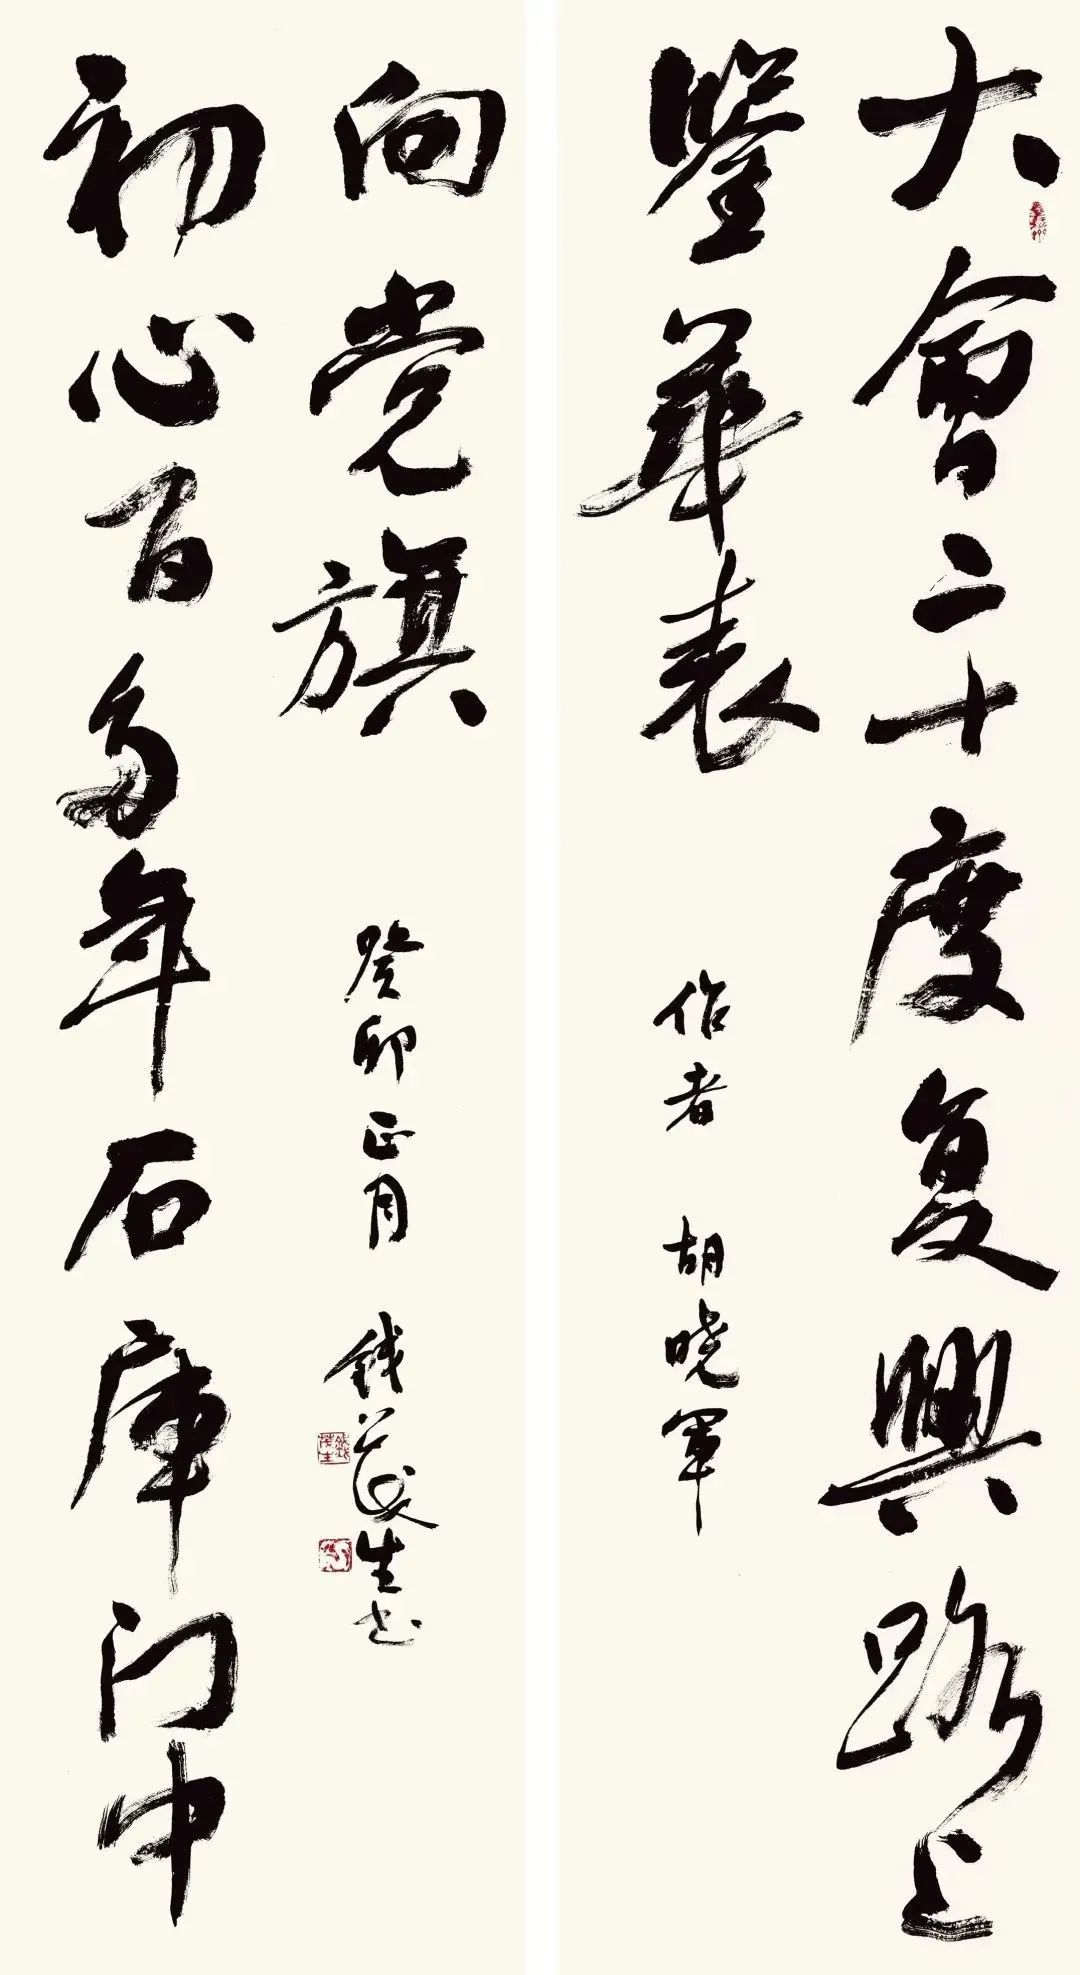 大會二十度复興路上
鑒華表
作者 胡晓軍
初心百多年石庫门中
向党旗
癸卯正月 钱茂生书